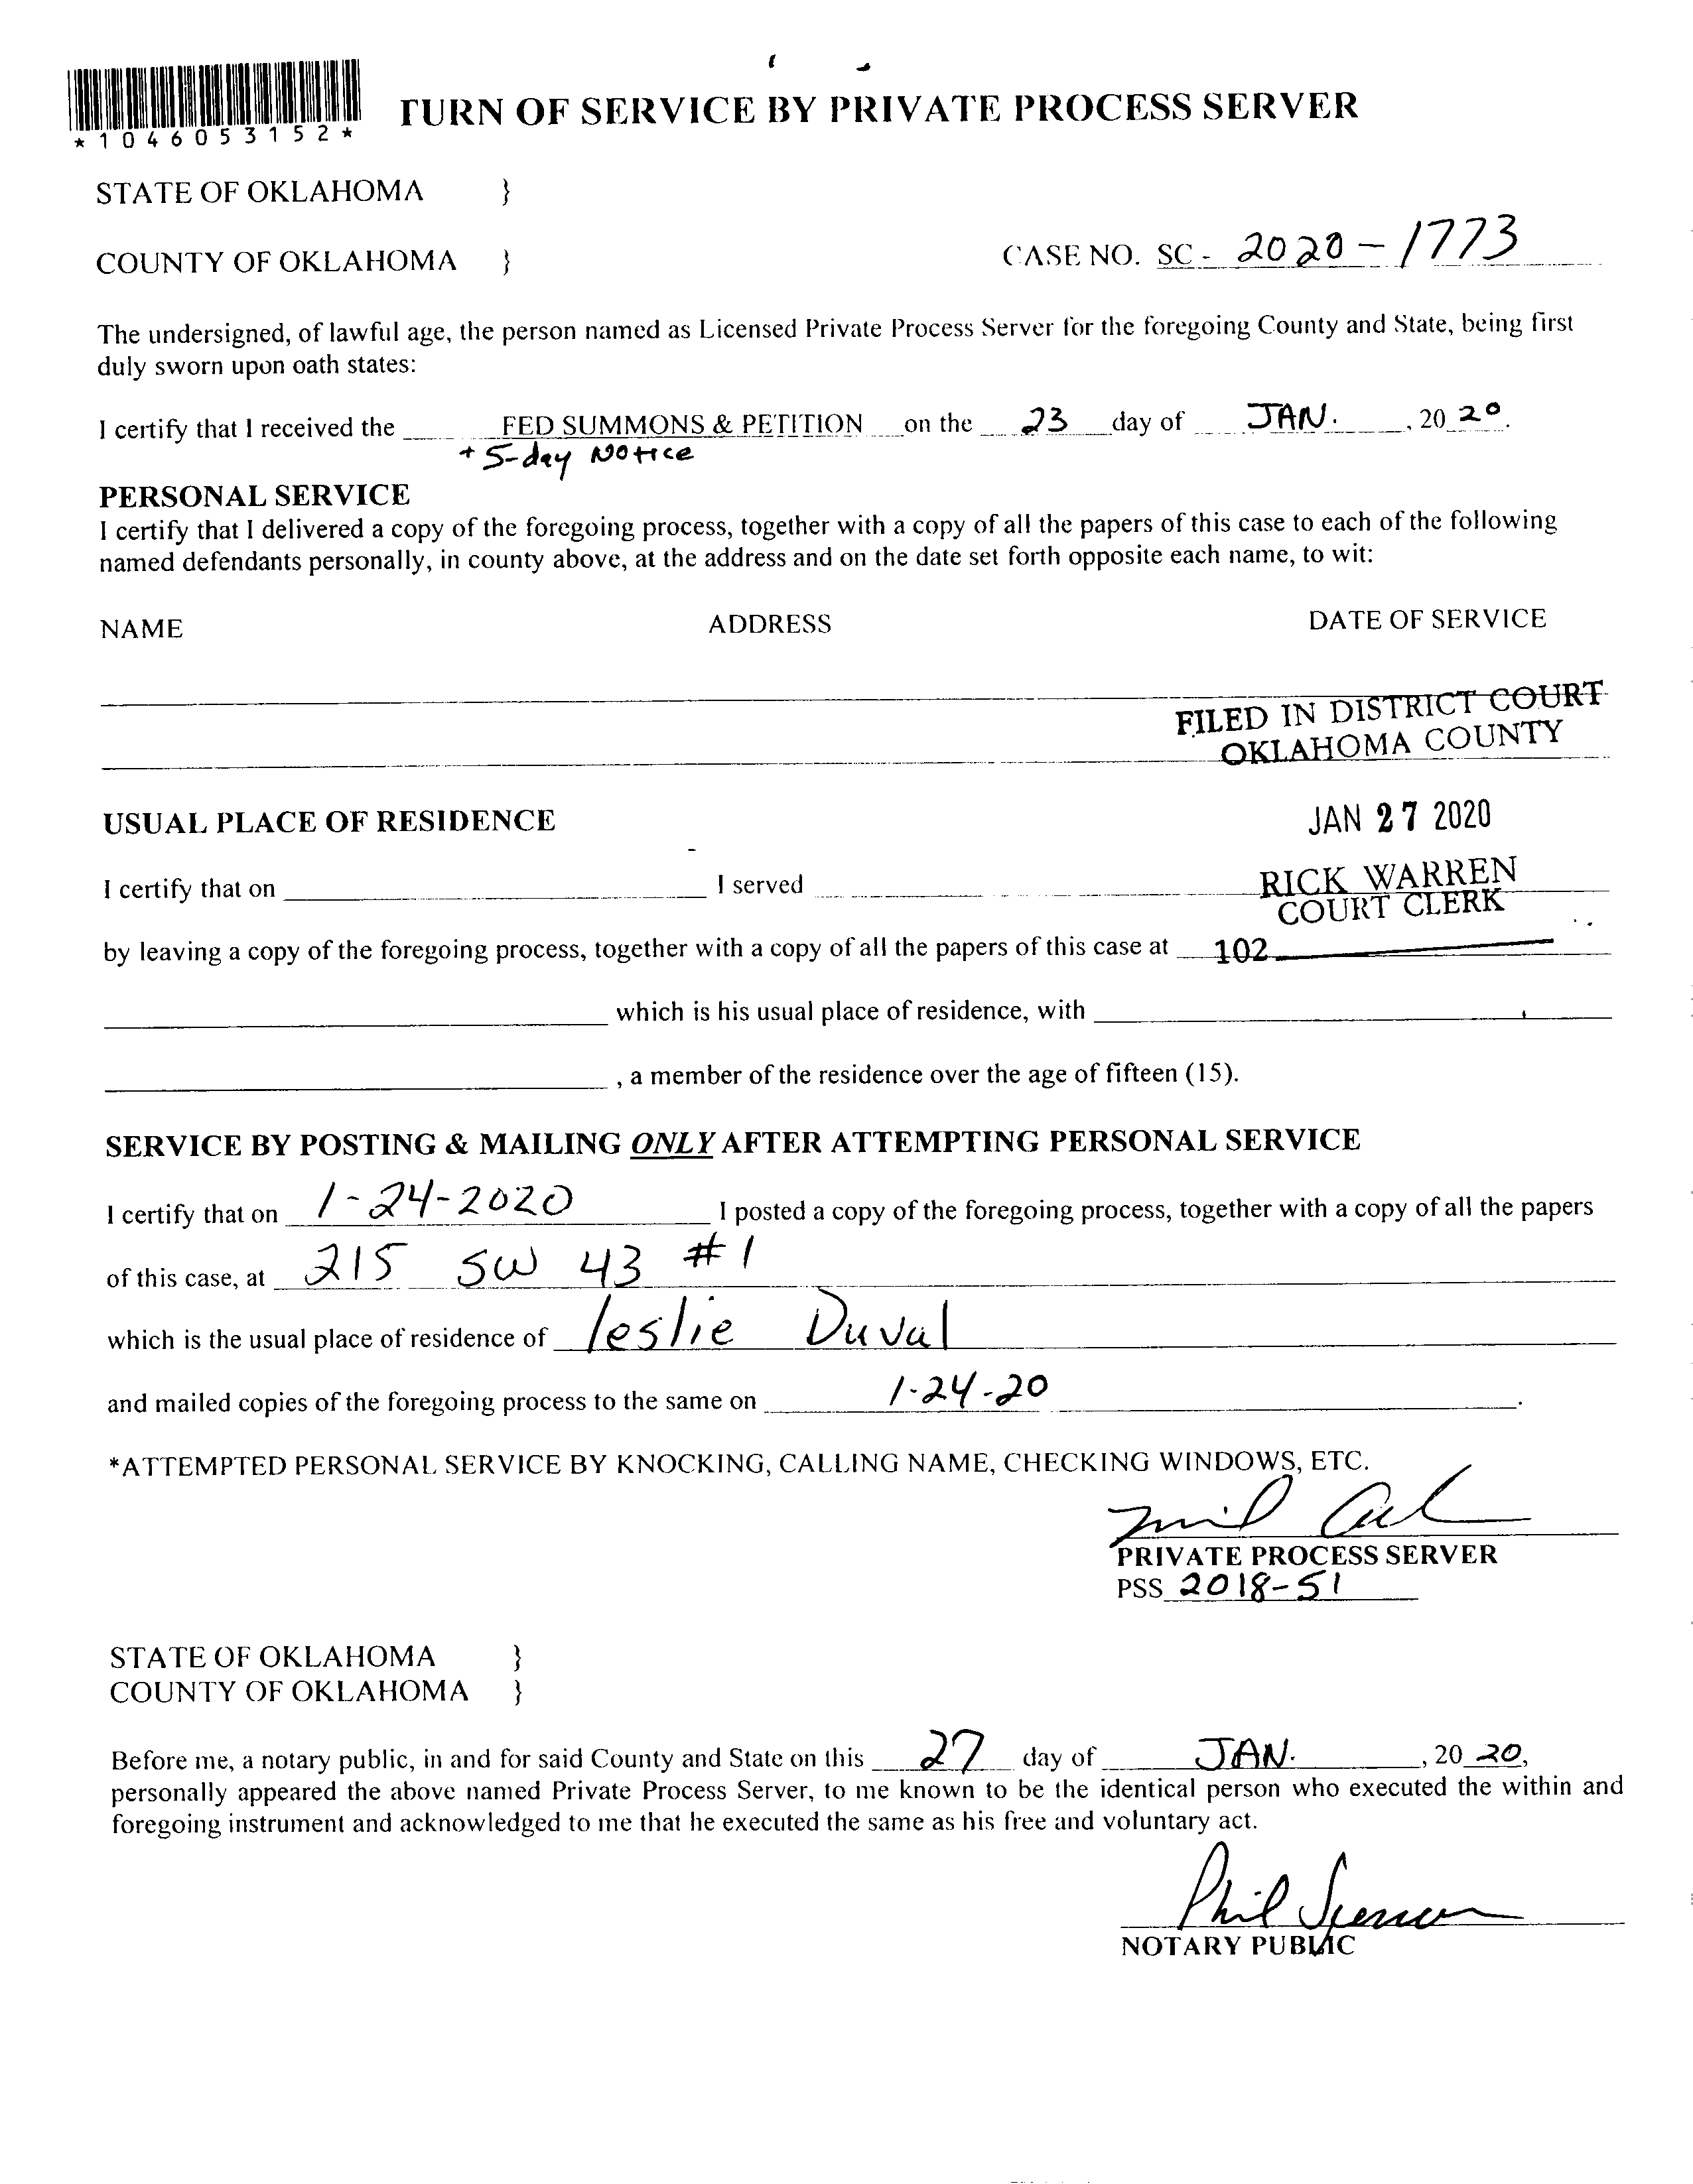 *1046053152*
TURN OF SERVICE BY PRIVATE PROCESS SERVER
STATE OF OKLAHOMA }
COUNTY OF OKLAHOMA } CASE NO. SC - 2020-1773
The undersigned, of lawful age, the person named as Licensed Private Process Server for the foregoing County and State, being first
duly sworn upon oath states:
I certify that I received the FED SUMMONS & PETITION on the 23 day of JAN. , 20 20.
+ 5-day Notice
PERSONAL SERVICE
I certify that I delivered a copy of the foregoing process, together with a copy of all the papers of this case to each of the following
named defendants personally, in county above, at the address and on the date set forth opposite each name, to wit:
NAME ADDRESS DATE OF SERVICE
FILED IN DISTRICT COURT
OKLAHOMA COUNTY
USUAL PLACE OF RESIDENCE JAN 27 2020
I certify that on I served RICK WARREN
COURT CLERK
by leaving a copy of the foregoing process, together with a copy of all the papers of this case at 102
which is his usual place of residence, with
, a member of the residence over the age of fifteen (15).
SERVICE BY POSTING & MAILING ONLY AFTER ATTEMPTING PERSONAL SERVICE
I certify that on 1-24-2020 I posted a copy of the foregoing process, together with a copy of all the papers
of this case, at 215 SW 43 #1
which is the usual place of residence of leslie Duval
and mailed copies of the foregoing process to the same on 1-24-20.
*ATTEMPTED PERSONAL SERVICE BY KNOCKING, CALLING NAME, CHECKING WINDOWS, ETC.
PRIVATE PROCESS SERVER
PSS 2018-51
STATE OF OKLAHOMA }
COUNTY OF OKLAHOMA }
Before me, a notary public, in and for said County and State on this 27 day of JAN. , 20 20,
personally appeared the above named Private Process Server, to me known to be the identical person who executed the within and
foregoing instrument and acknowledged to me that he executed the same as his free and voluntary act.
Phil
NOTARY PUBLIC